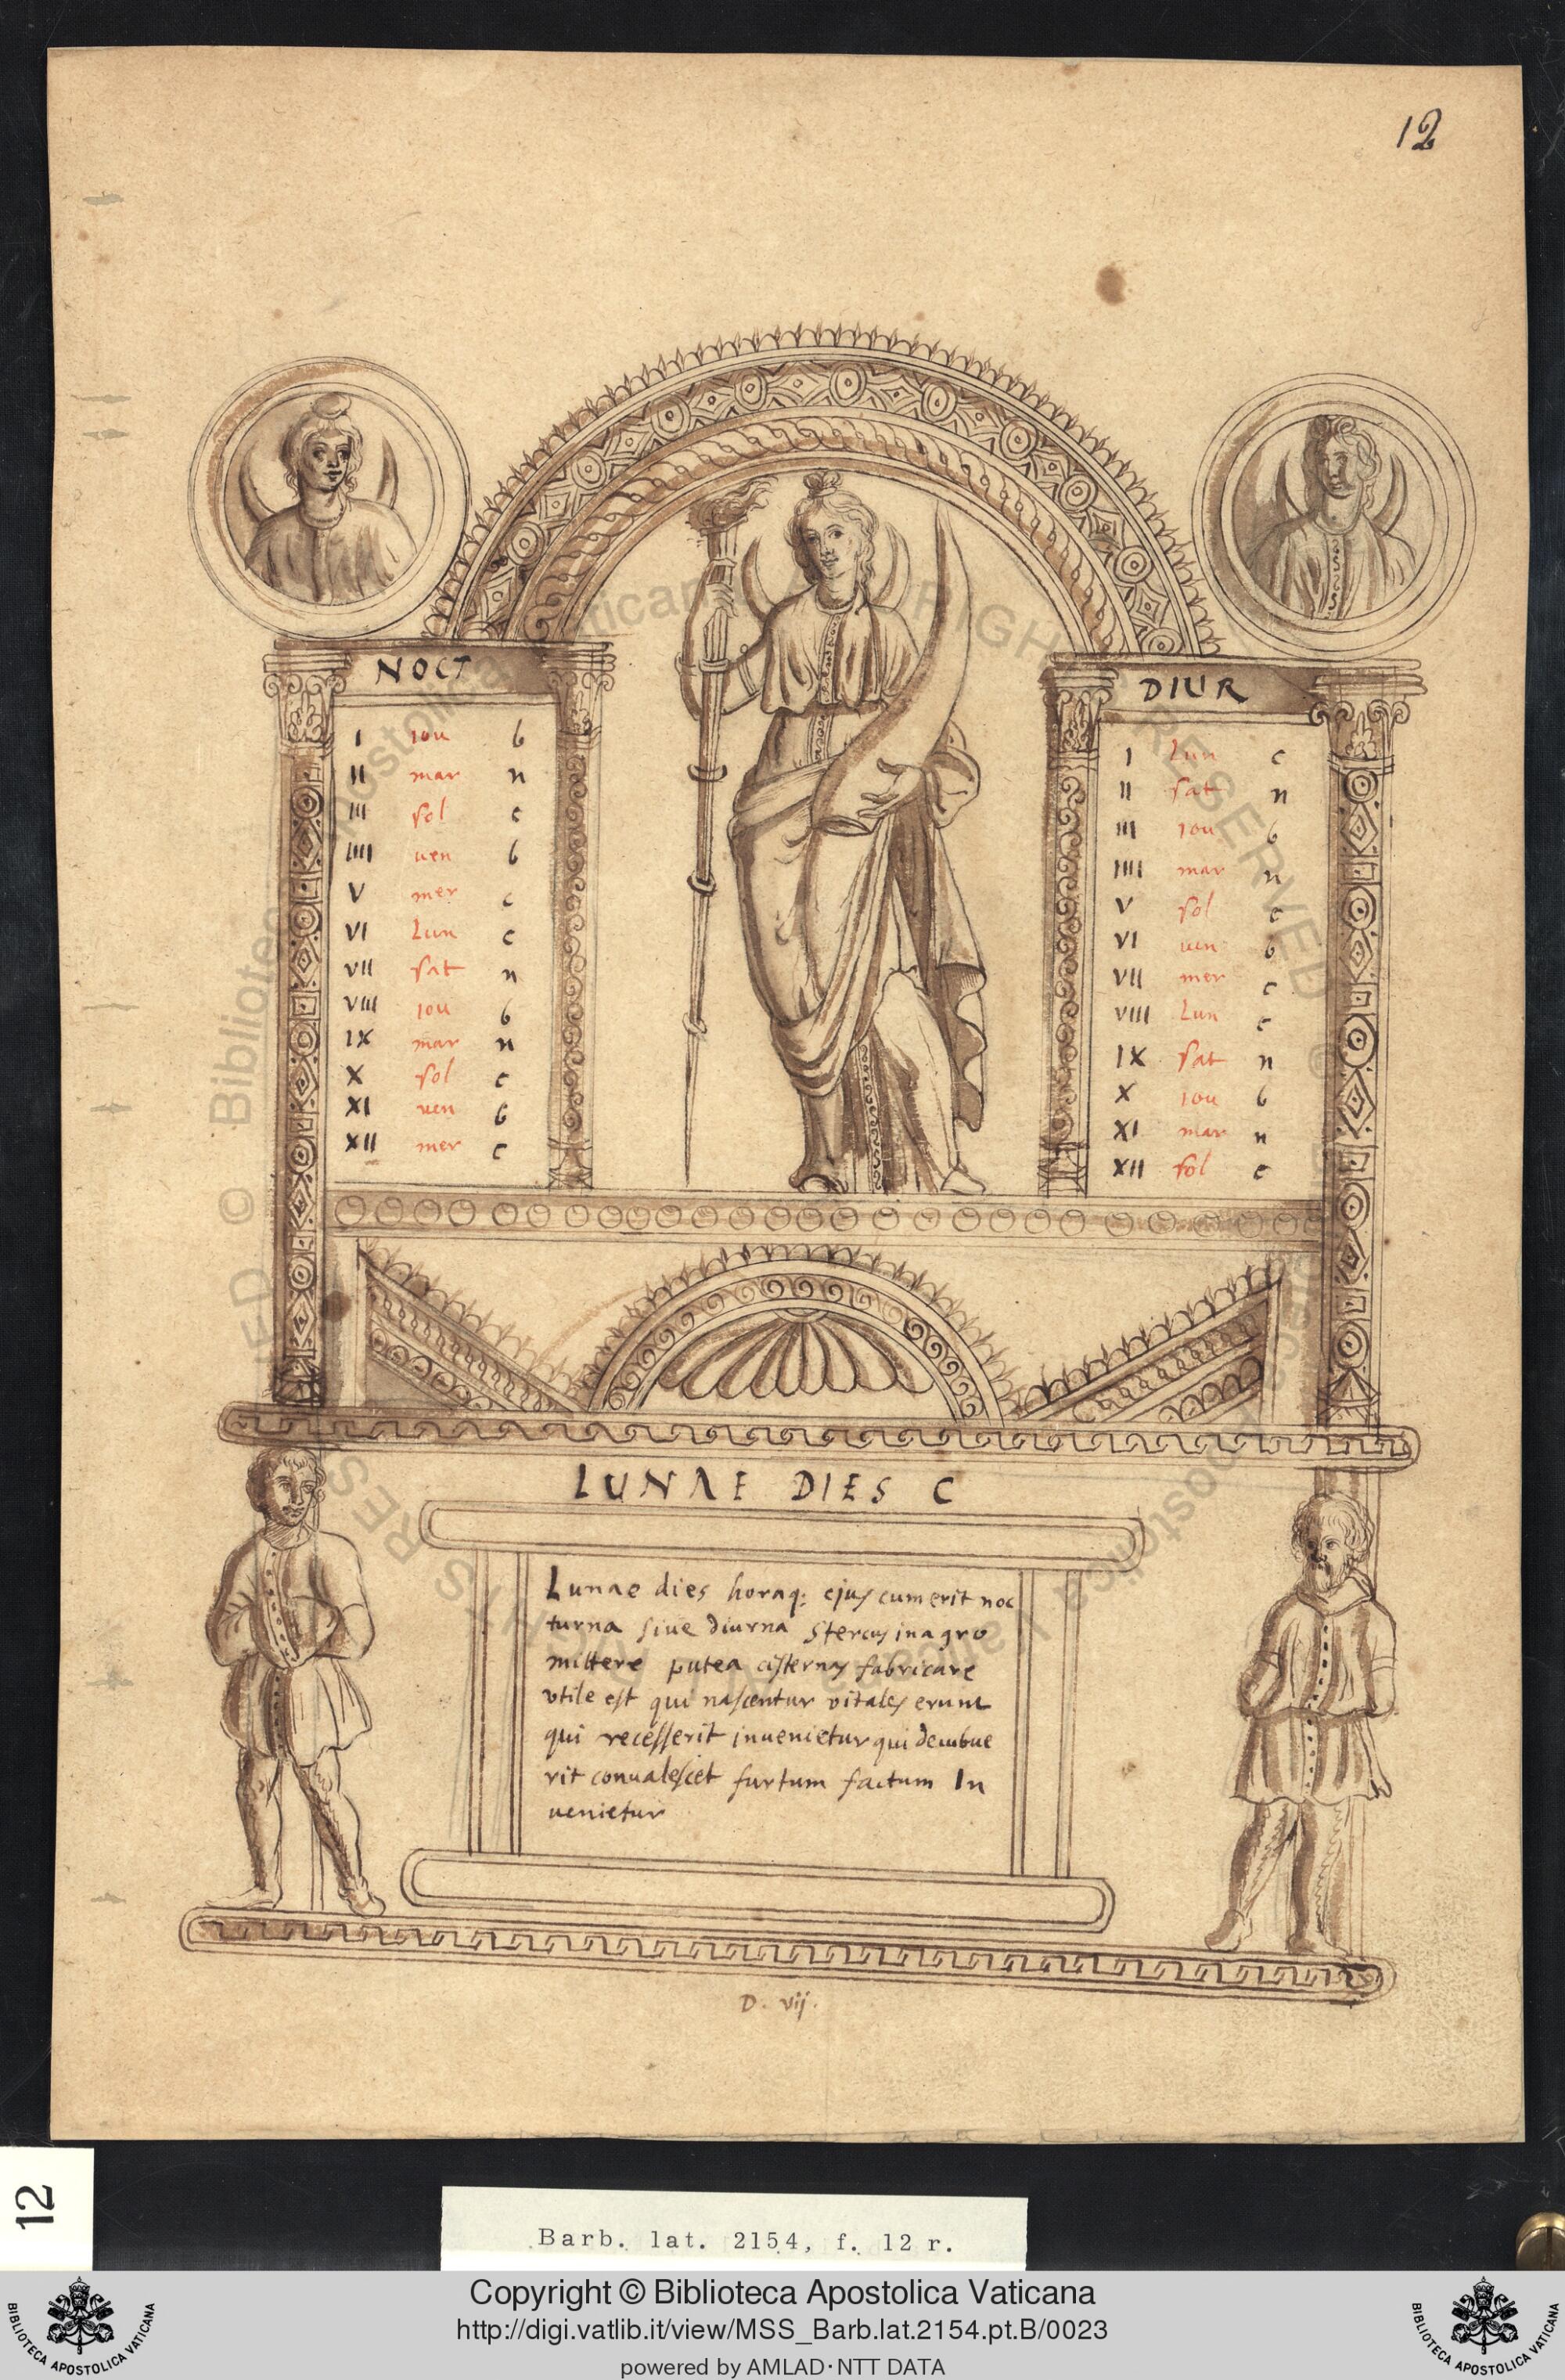 12
NOCT
I iou b
II mar n
III sol c
IIII uen b
V mer c
VI Lun c
VII sat n
VIII iou b
IX mar n
X sol c
XI uen b
XII mer c
DIUR
I Lun c
II sat n
III iou b
IIII mar n
V sol c
VI uen b
VII mer c
VIII Lun c
IX sat n
X iou b
XI mar n
XII sol c
LUNAE DIES C
Lunae dies horaq; ejus cum erit noc
turna siue diurna stercus in agro
mittere putea cisternas fabricare
vtile est qui nascentur vitales erunt
qui recesserit inuenietur qui decubue
rit conualescet furtum factum In
uenietur
D. vij.
12
Barb. lat. 2154, f. 12 r.
Copyright © Biblioteca Apostolica Vaticana
http://digi.vatlib.it/view/MSS_Barb.lat.2154.pt.B/0023
powered by AMLAD·NTT DATA
BIBLIOTECA APOSTOLICA VATICANA
BIBLIOTECA APOSTOLICA VATICANA